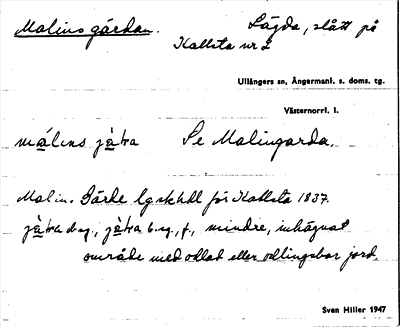 Malinsgärdan.
Lägda, slått på
Kallsta nr 2
Ullångers sn, Ångermanl. s. doms. tg.
Västernorrl. l.
málins jä̀ʈra Se Malingarda.
Malin. Gärde lgskhdl för Kallsta 1837.
f., mindre, inhägnat
område med odlad eller odlingsbar jord.
Sven Hiller 1947